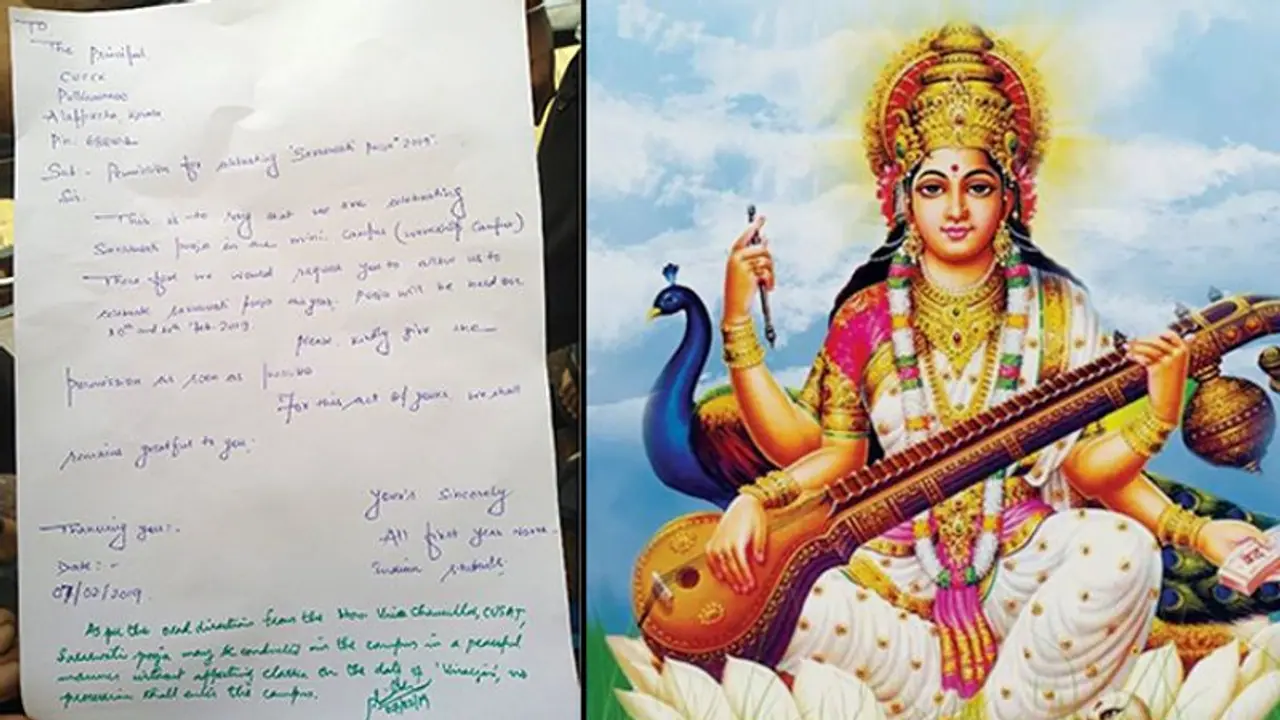 TO
The Principal
CUCEK
Pulincunnoo
Alappuzha, Kerala
Pin:
Sub - Permission for celebrating "Saraswati Pooja" 2019".
Sir.
This is to say that we are celebrating
Saraswati pooja in the mini campus (workshop campus)
There for we would request you to allow us to
celebrate saraswati pooja. Pooja will be held on
10th and Feb. 2019.
please. kindly give the
permission as soon as possible
For this act of yours we shall
remains greatful to you.
Your's Sincerely
Thanking you:-
All first year
Indian students.
Date :-
07/02/2019.
As per the oral direction from the Hon Vice Chancellor, CUSAT,
Saraswati pooja may be conducted in the campus in a peaceful
manner without affecting classes. On the date of 'Visarjan', no
procession shall enter the campus.